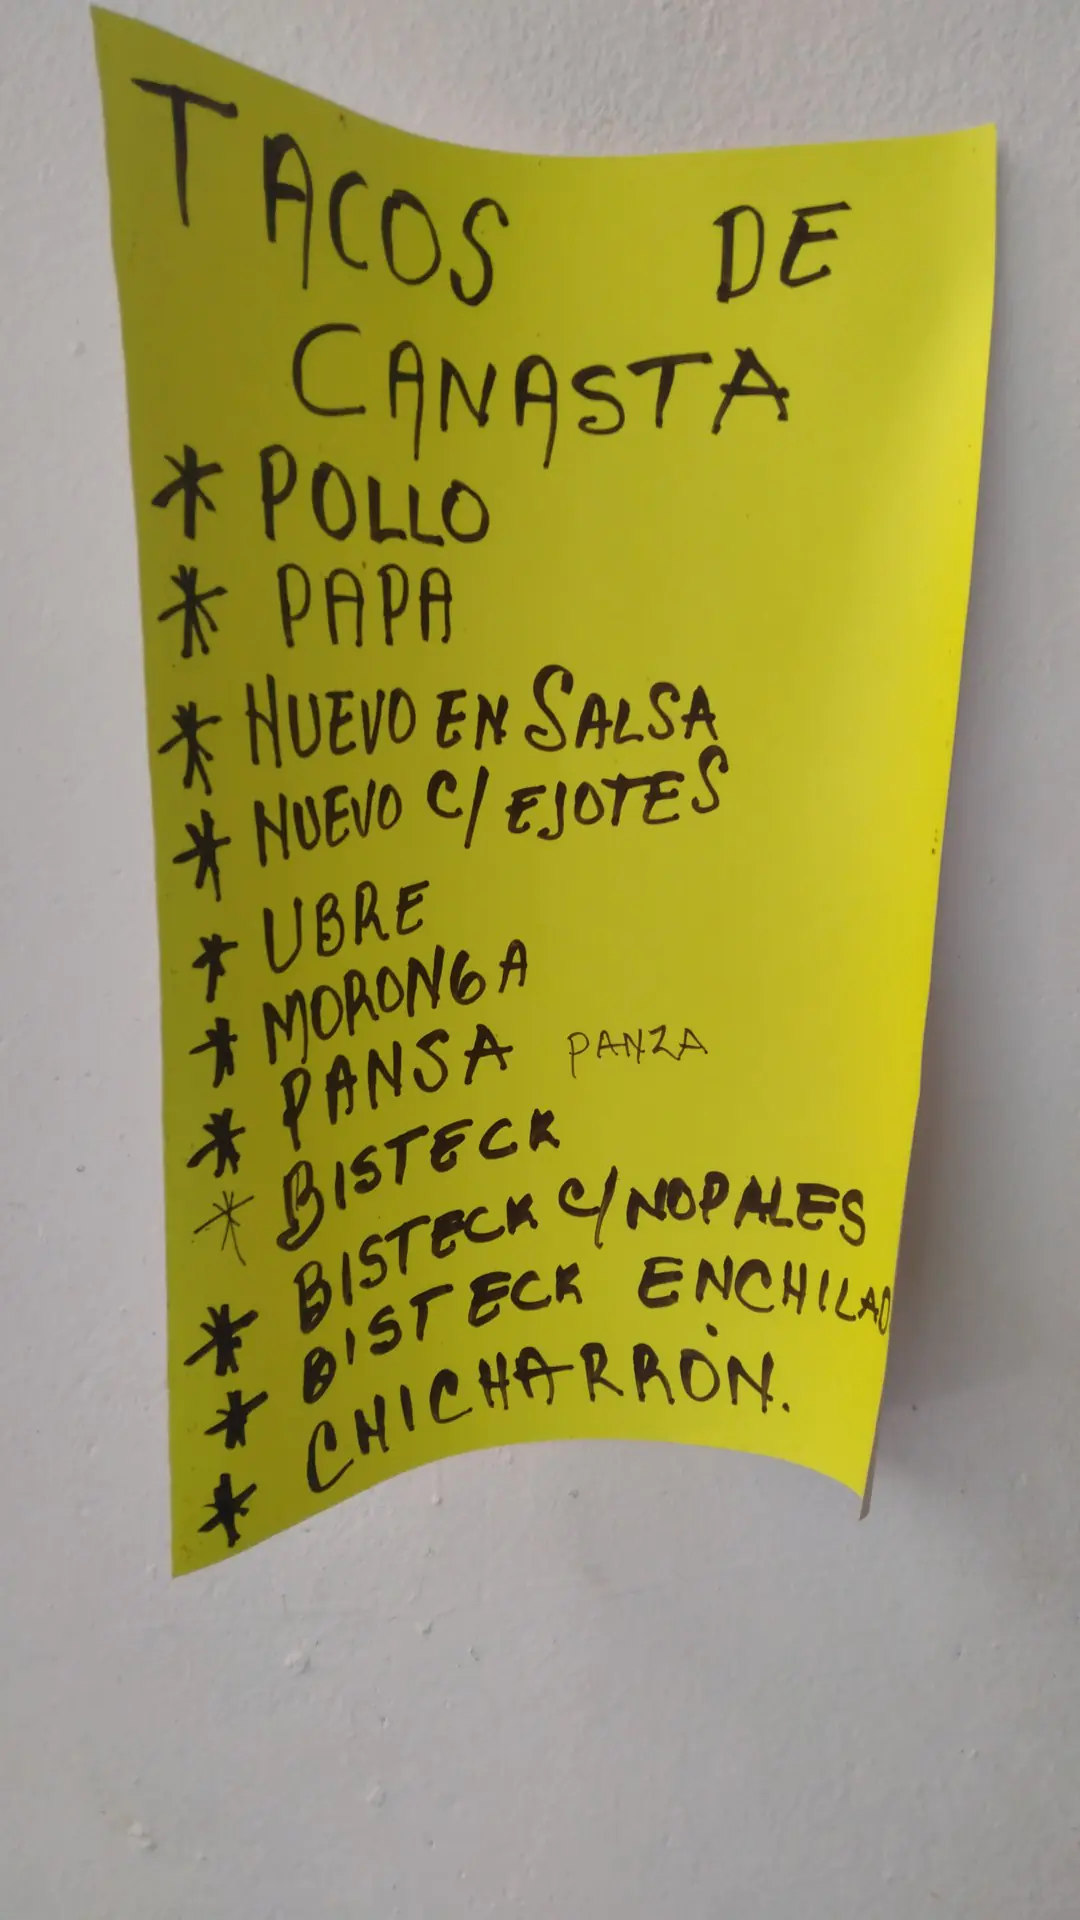 TACOS DE
CANASTA
* POLLO
* PAPA
* HUEVO EN SALSA
* HUEVO C/ EJOTES
* UBRE
* MORONGA
* PANSA PANZA
* BISTECK
* BISTECK C/NOPALES
* BISTECK ENCHILAO
* CHICHARRÓN.